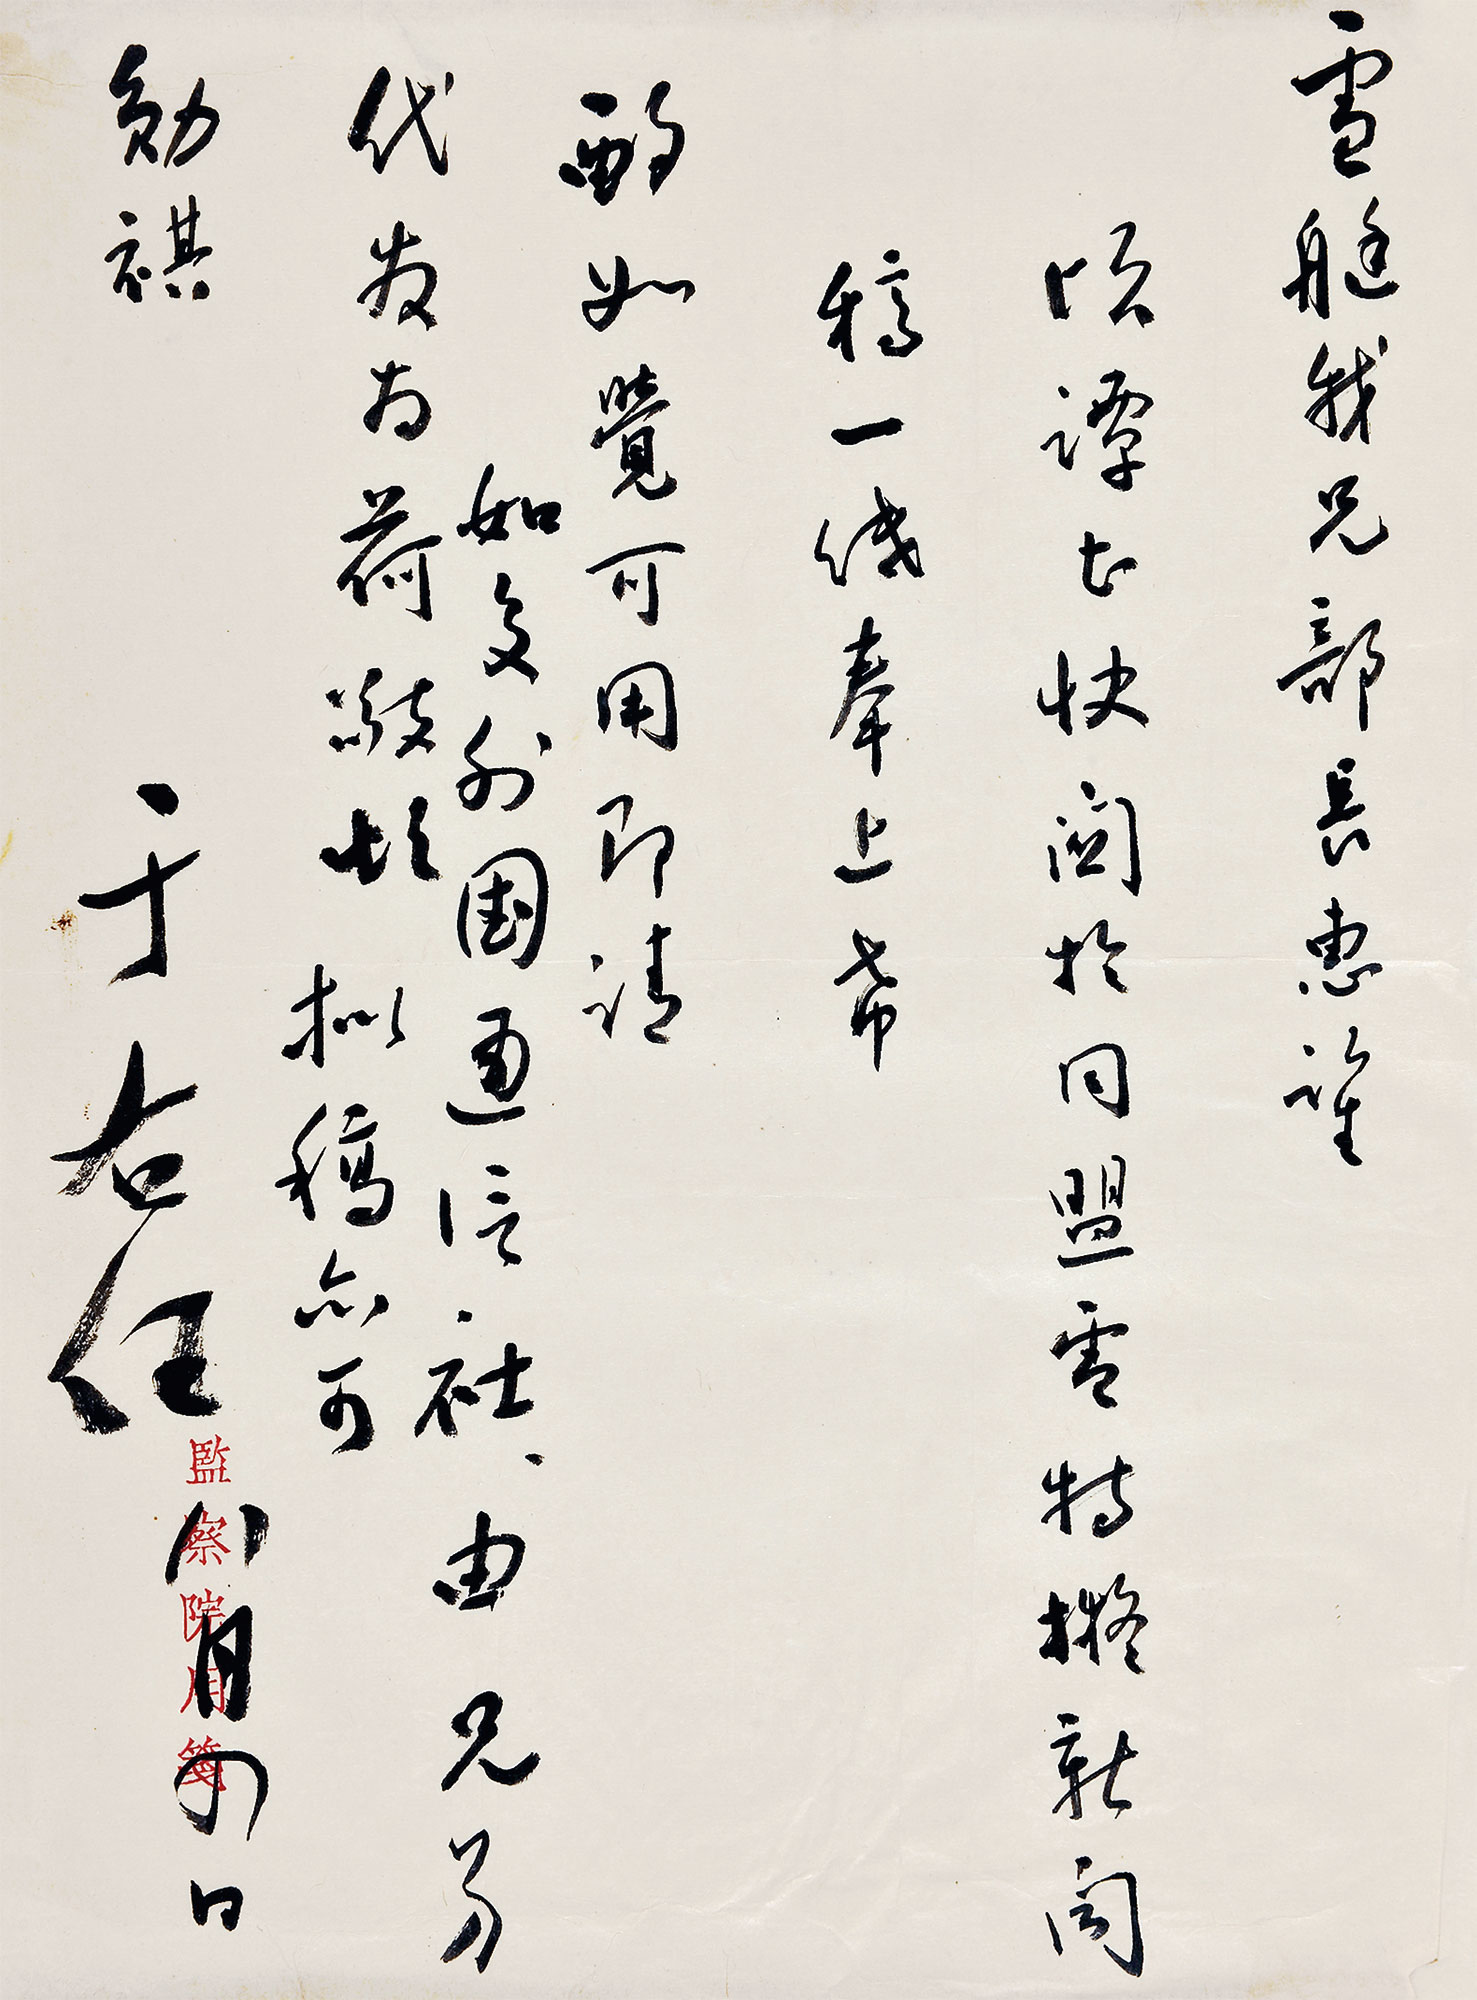 雪艇我兄部長惠鑒
頃譚甚快關於同盟會特擬新聞
稿一奉上希
酌如覺可用即請
代發为荷敬頌
如交外國通信社、由兄另
拟稿亦可
勛祺
于右任
八月四日
監察院用箋